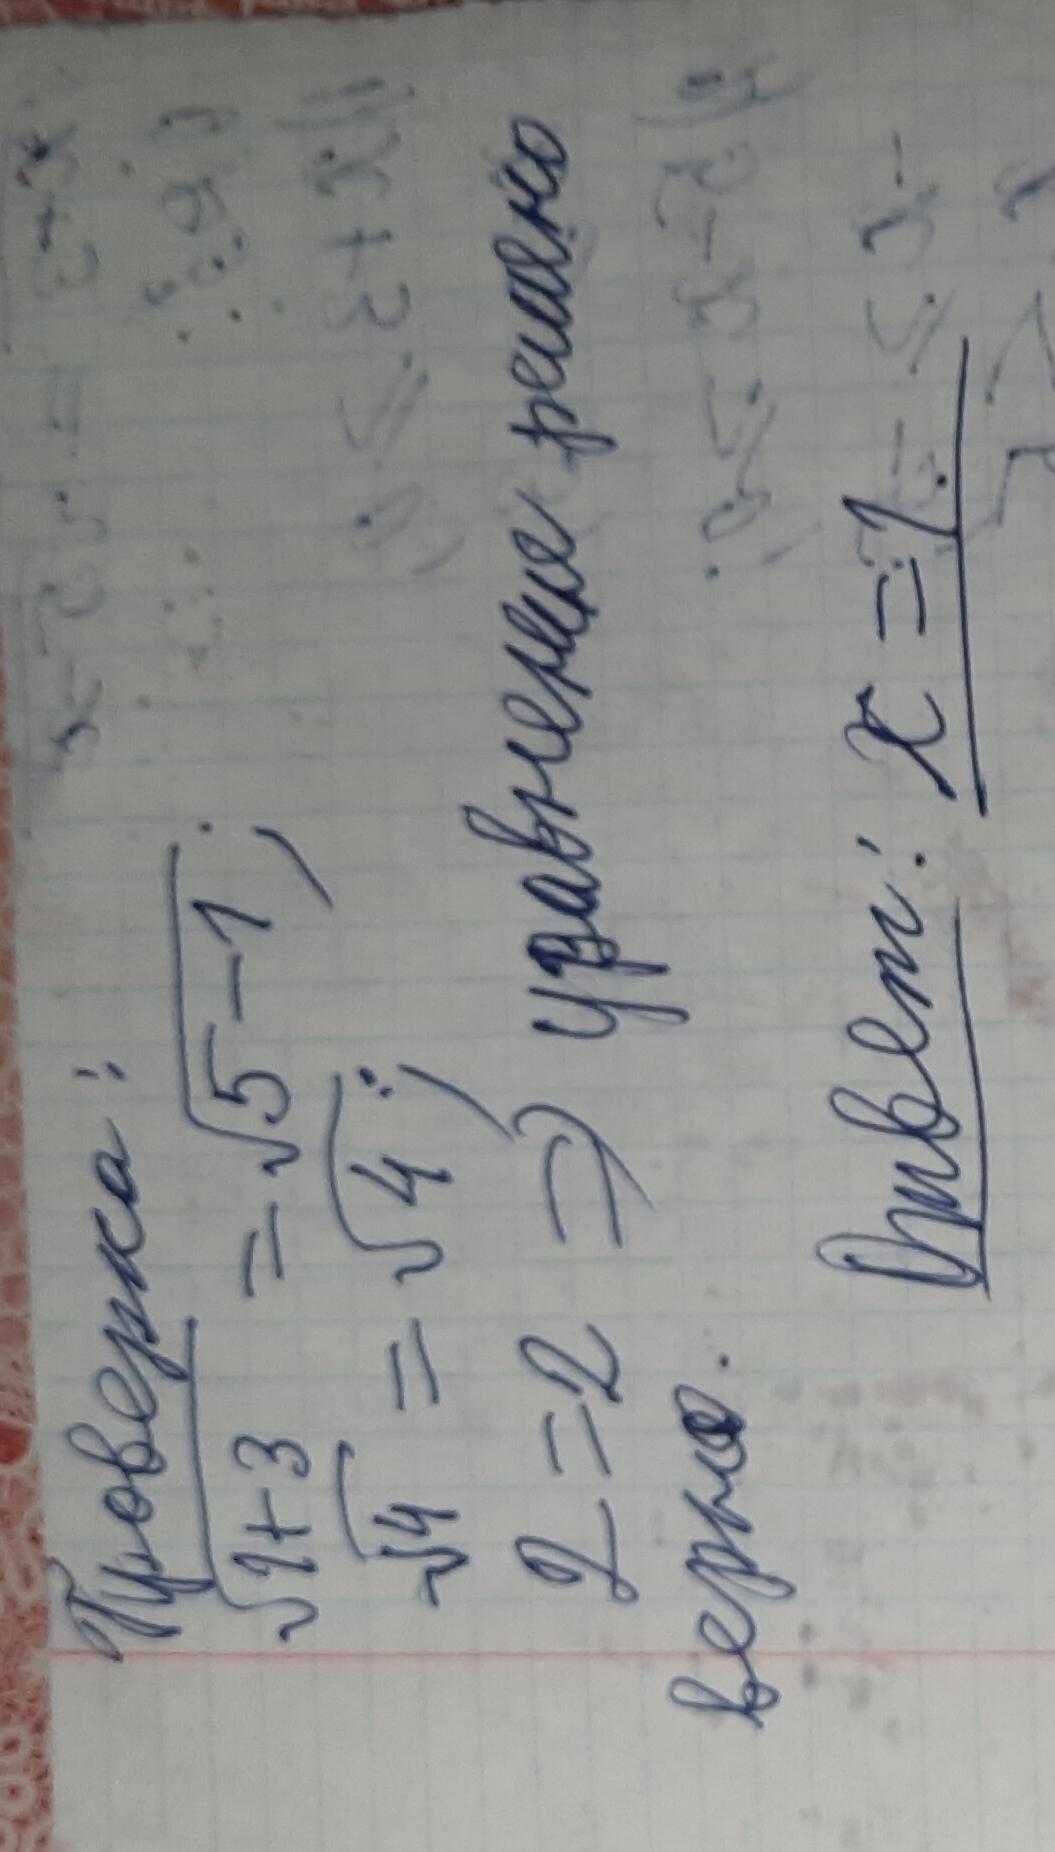 Проверка:
√1+3 = √5-1;
√4 = √4;
2=2 => уравнение решено
верно.
Ответ: x=1.